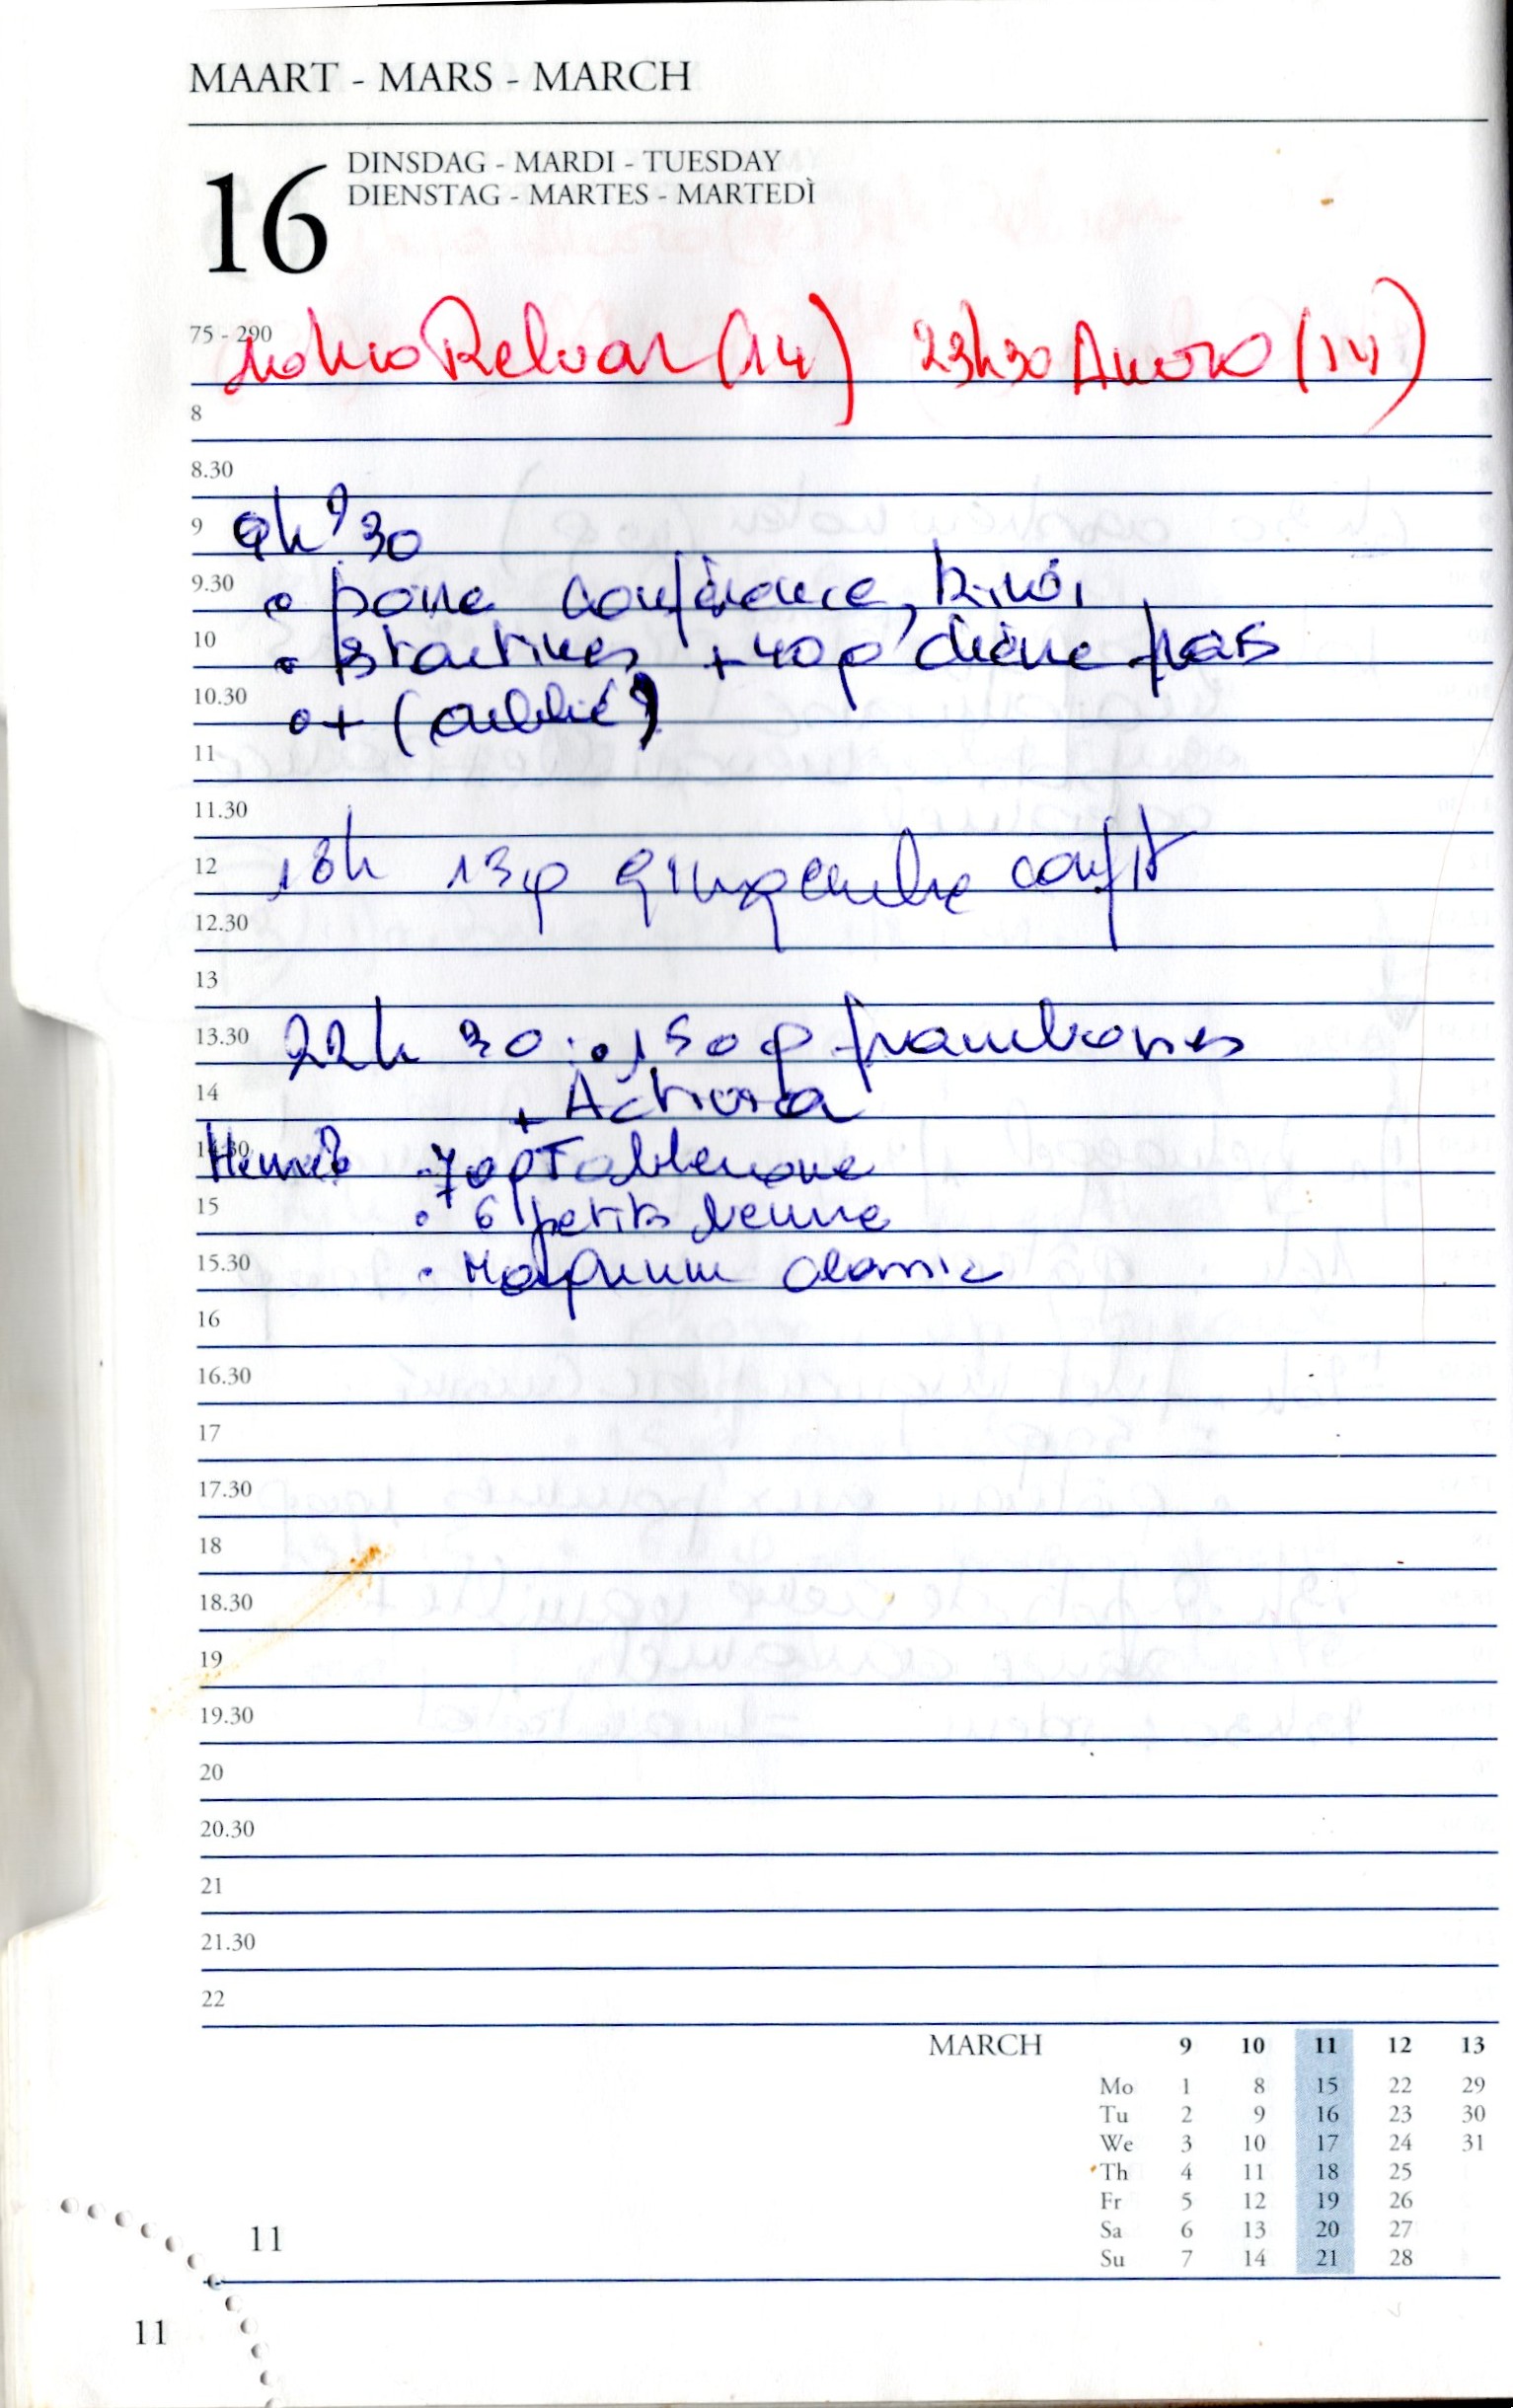 MAART - MARS - MARCH
16
DINSDAG - MARDI - TUESDAY
DIENSTAG - MARTES - MARTEDÌ
75 - 290
(14) 23h30 (14)
8
8.30
9 9h30
9.30 • poire conférence, kiwi
10 • 3 tartines + 40g chèvre frais
10.30 • + (oublié)
11
11.30
12 18h 13g gingembre confit
12.30
13
13.30 22h30 : • 150g framboises
14 + Activia
14.30 70g Toblerone
15 • 6 petits beurre
15.30 • Magnum classic
16
16.30
17
17.30
18
18.30
19
19.30
20
20.30
21
21.30
22
MARCH 9 10 11 12 13
Mo 1 8 15 22 29
Tu 2 9 16 23 30
We 3 10 17 24 31
Th 4 11 18 25
Fr 5 12 19 26
Sa 6 13 20 27
Su 7 14 21 28
11
11